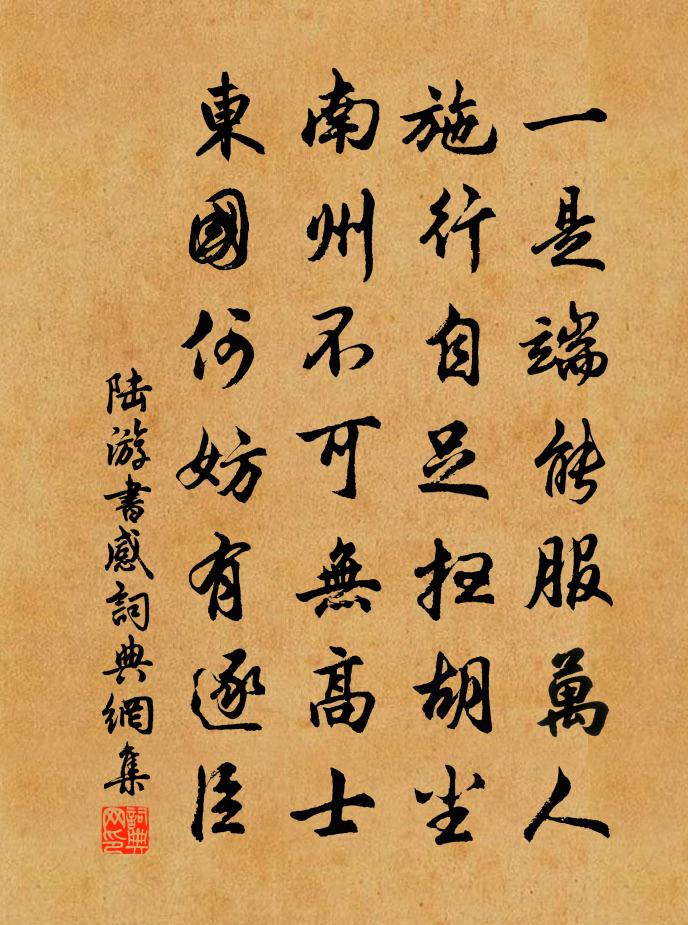 一是端能服萬人
施行自足掃胡尘
南州不可無高士
東國何妨有逐臣
陆游書感詞典網集
詞典网印